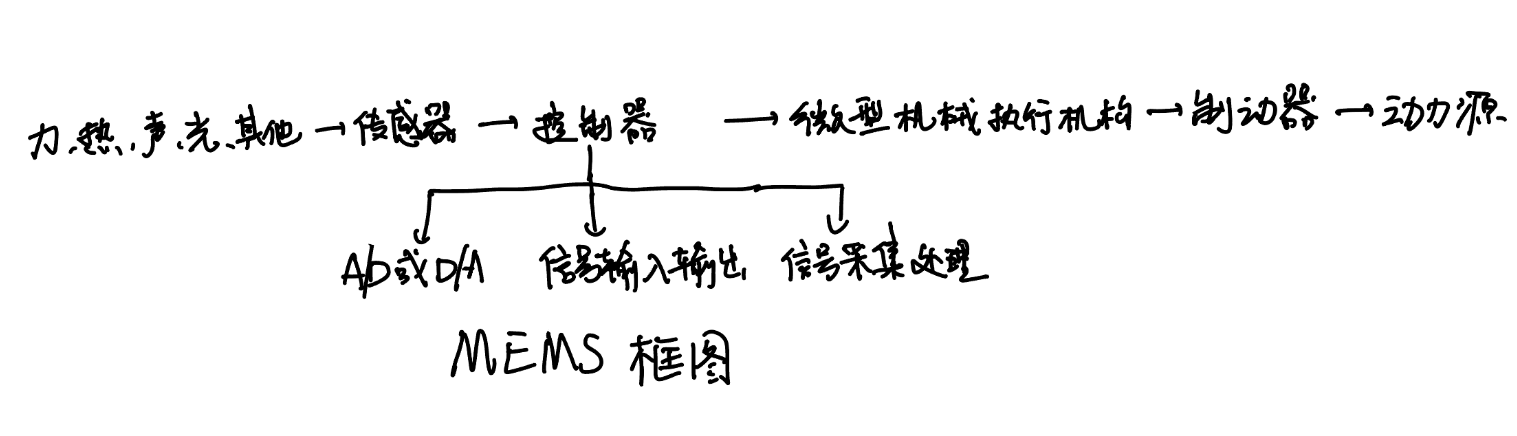 力、热、声、光、其他→传感器→控制器→微型机械执行机构→制动器→动力源
A/D或D/A 信号输入输出 信号采集处理
MEMS 框图